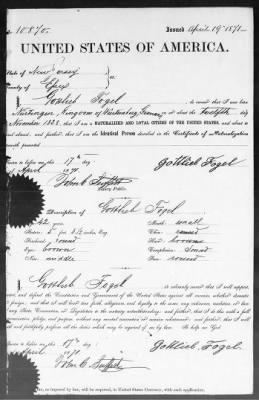 10.870. Issued April 19th 1871
UNITED STATES OF AMERICA.
State of New Jersey
County of Essex ss:
I, Gottlieb Fogel, do swear that I was born in
Kingdom of on or about the Twelfth day
of November 1828, that I am a NATURALIZED AND LOYAL CITIZEN OF THE UNITED STATES, and about to
travel abroad; and further, that I am the Identical Person described in the Certificate of Naturalization
herewith presented.
Sworn to before me, this 17th day
of April 1871
Gottlieb Fogel
Notary Public.
Description of Gottlieb Fogel
Age: 42 years Mouth: small
Stature: 5 feet inches, Eng. Chin: round
Forehead: round Hair: brown
Eyes: brown Complexion:
Nose: middle Face: round
I, Gottlieb Fogel do solemnly swear that I will support,
protect, and defend the Constitution and Government of the United States against all enemies, whether domestic
or foreign; and that I will bear true faith, allegiance, and loyalty to the same, any ordinance, resolution or law
of any State, Convention, or Legislature to the contrary notwithstanding; and further, that I do this with a full
determination, pledge, and purpose, without any mental reservation or evasion whatsoever; and further, that I will
well and faithfully perform all the duties which may be required of me by law. So help me God.
Sworn to before me, this 17th day
of April 1871
Gottlieb Fogel
tax, as imposed by law, will be required, in United States Currency, with each application.